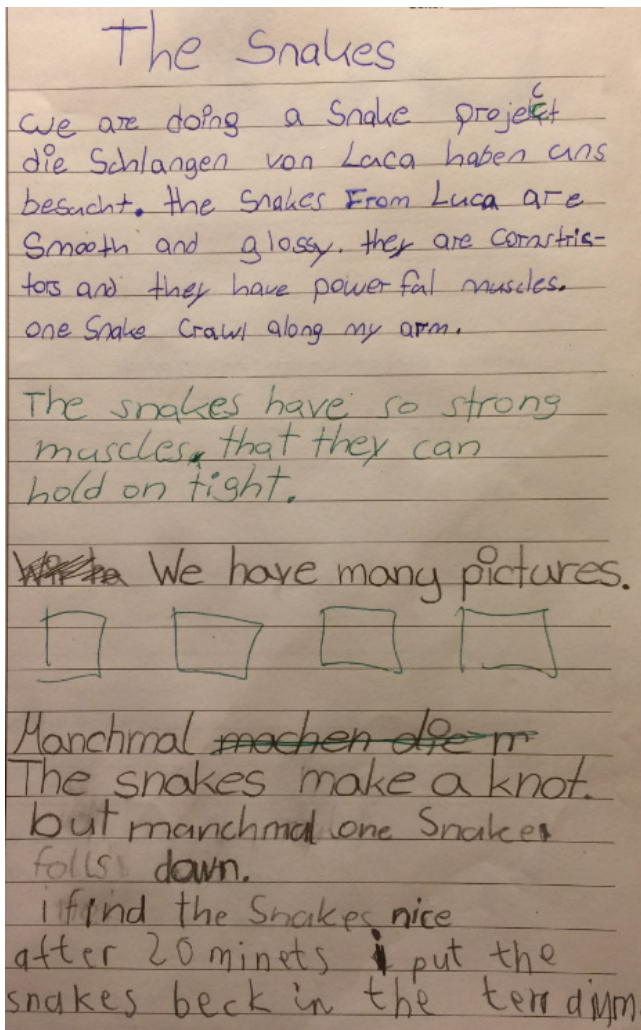 The Snakes
We are doing a Snake project
die Schlangen von Luca haben uns
besucht. the Snakes From Luca are
Smooth and glossy. they are cornstris-
tors and they have powerful muscles.
one Snake Crawl along my arm.
The snakes have so strong
muscles, that they can
hold on tight.
We have many pictures.
Manchmal machen die m
The snakes make a knot.
but manchmal one Snake
falls down.
i find the Snakes nice
after 20 minets i put the
snakes beck in the terrarium